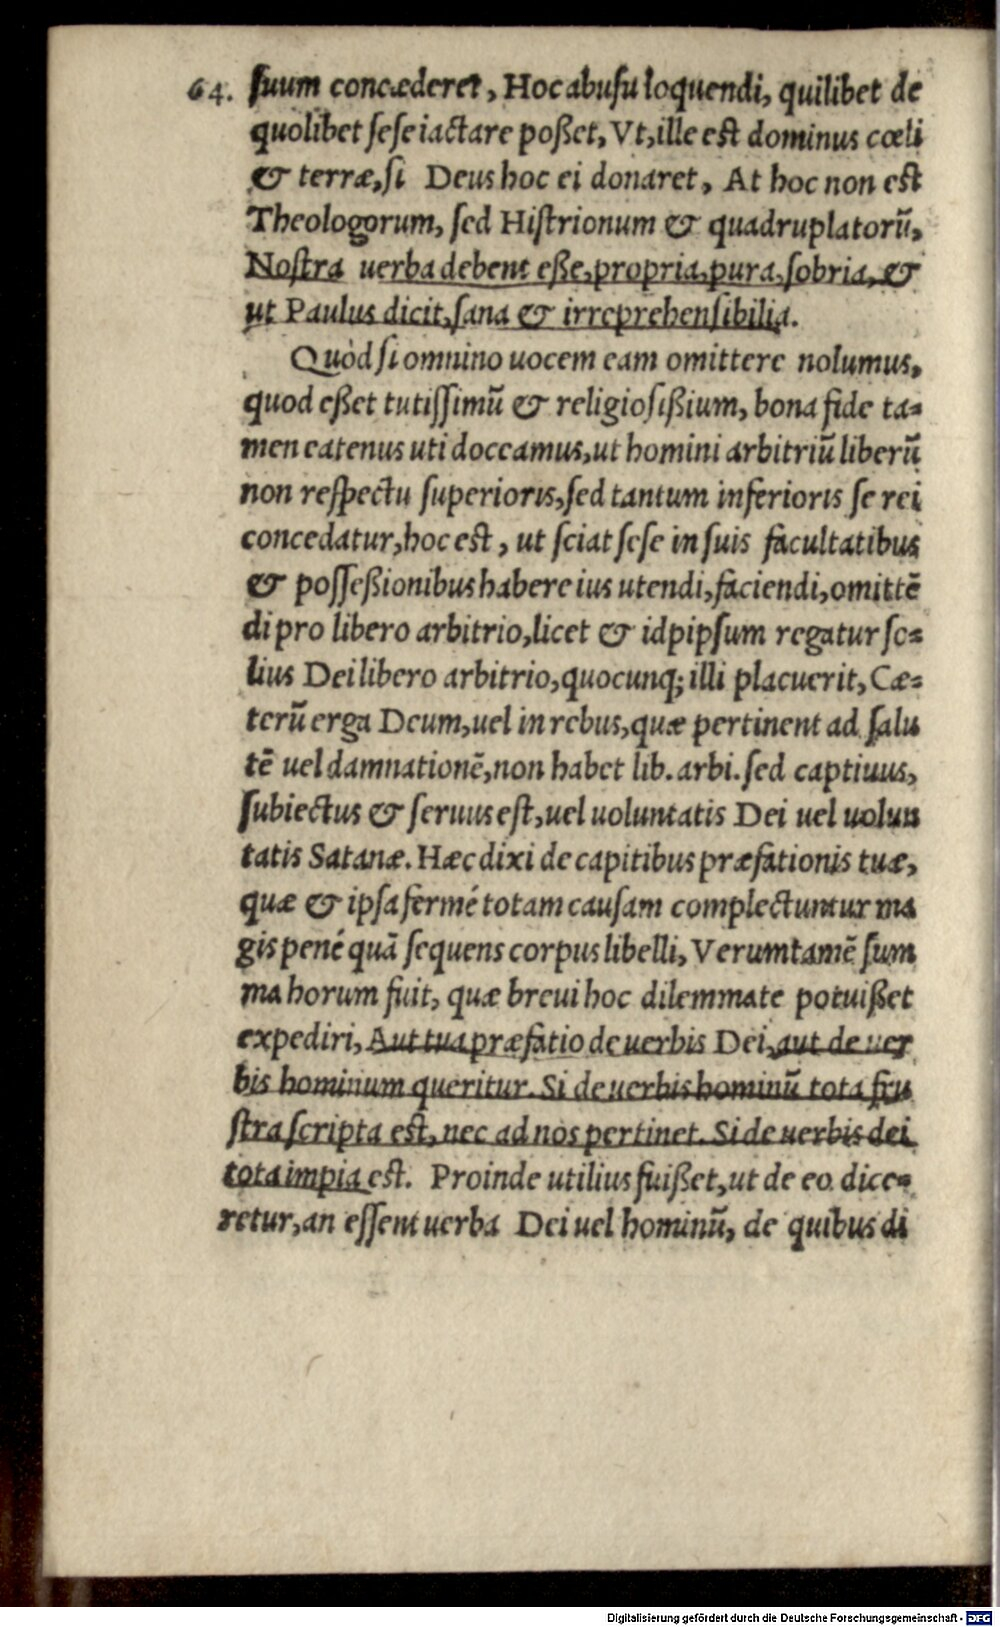 64. ſuum concæderet, Hoc abuſu loquendi, quilibet de
quolibet ſeſe iactare poßet, Vt, ille est dominus cœli
& terræ, ſi Deus hoc ei donaret, At hoc non est
Theologorum, ſed Hiſtrionum & quadruplatorū,
Noſtra uerba debent eße, propria, pura, ſobria, &
ut Paulus dicit, ſana & irreprehenſibilia.
Quòd ſi omnino uocem eam omittere nolumus,
quod eßet tutiſſimū & religioſißium, bona fide ta-
men eatenus uti doceamus, ut homini arbitriū liberū
non reſpectu ſuperioris, ſed tantum inferioris ſe rei
concedatur, hoc est, ut ſciat ſeſe in ſuis facultatibus
& poſſeßionibus habere ius utendi, faciendi, omittē
di pro libero arbitrio, licet & idpipſum regatur ſo-
lius Dei libero arbitrio, quocunq; illi placuerit, Cæ-
terū erga Deum, uel in rebus, quæ pertinent ad ſalu
tē uel damnationē, non habet lib. arbi. ſed captiuus,
ſubiectus & ſeruus eſt, uel uoluntatis Dei uel uolun
tatis Satanæ. Hæc dixi de capitibus præfationis tuæ,
quæ & ipſa fermé totam cauſam complectuntur ma
gis pené quā ſequens corpus libelli, Verumtamē ſum
ma horum fuit, quæ breui hoc dilemmate potuißet
expediri, Aut tua præfatio de uerbis Dei, aut de uer
bis hominum queritur. Si de uerbis hominū tota fru
ſtra ſcripta est, nec ad nos pertinet. Si de uerbis dei
tota impia est. Proinde utilius fuißet, ut de eo dice-
retur, an eſſent uerba Dei uel hominū, de quibus di
Digitalisierung gefördert durch die Deutsche Forschungsgemeinschaft - DFG